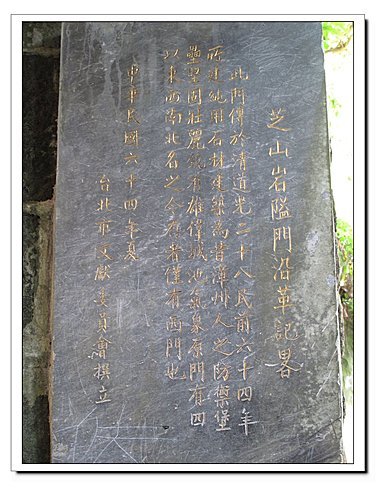 芝山岩隘門沿革記畧
此門傳於清道光二十八民前六十四年
所建純用石材建築為昔漳州人之防禦堡
壘堅固壯麗饒有雄偉城池氣象原門有四
以東西南北名之今存者僅有西門也
中華民國六十四年夏
台北市文獻委員會撰立